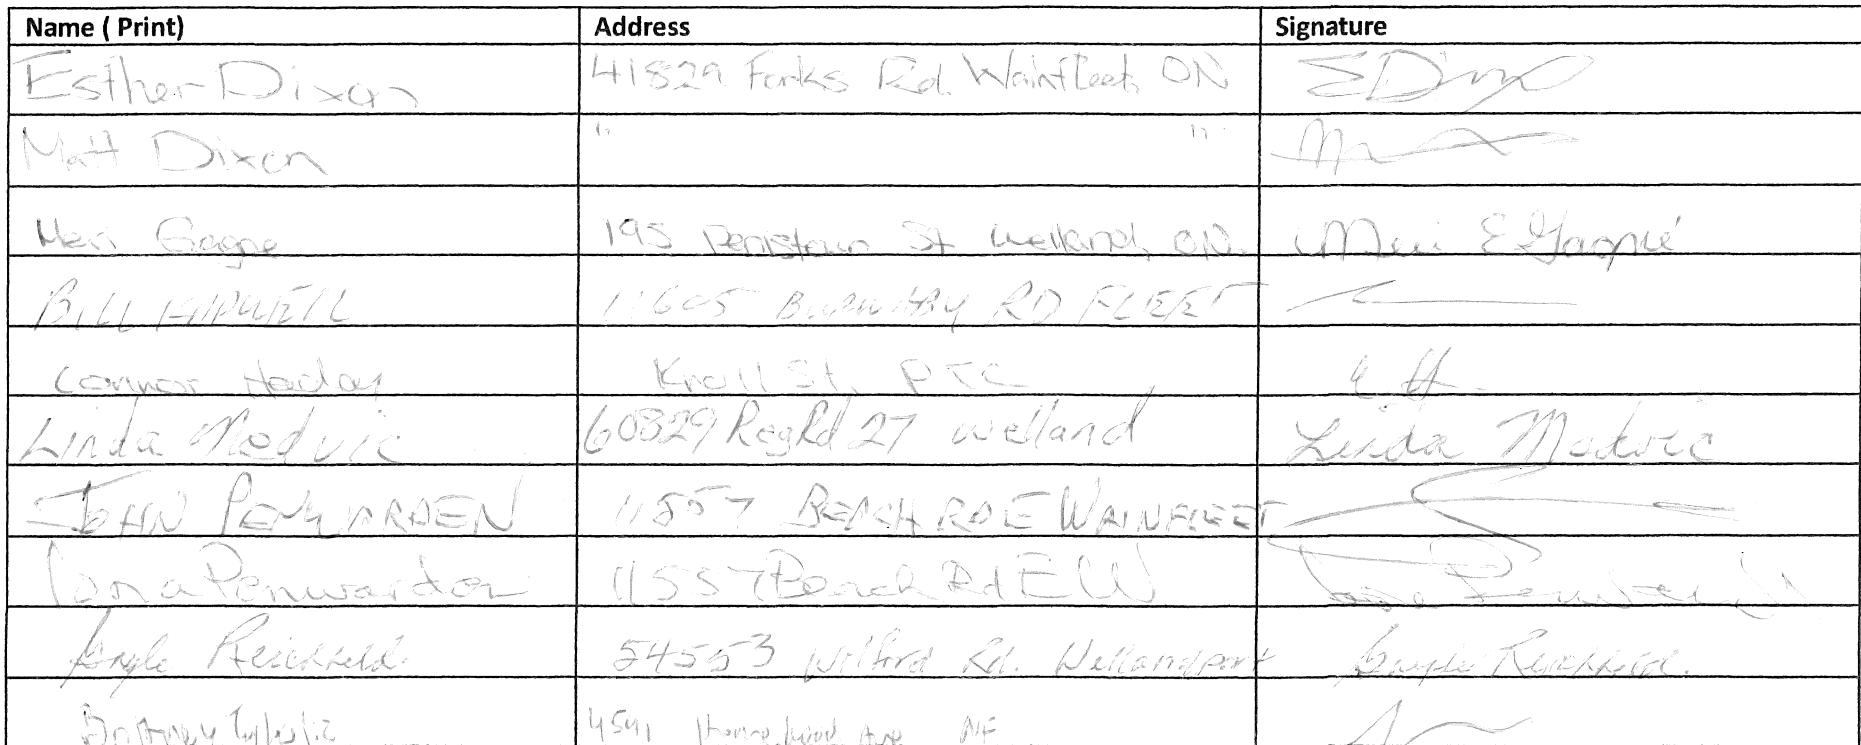 Name ( Print) Address Signature
Esther Dixon 41829 Forks Rd. Wainfleet, ON E Dixon
Matt Dixon " "
Meri Gagne 195 St Welland, ON. Meri E Gagné
BILL 11605 BURNABY RD FLEET
Connor Knoll St. PTC C H.
Linda Medvic 60829 Reg Rd 27 Welland Linda Medvic
JOHN PENWARDEN 11557 BEACH RD E WAINFLEET
Penwarden 11557 Beach Rd E W Penwarden
Gayle Reichheld. 54553 Wilford Rd. Wellandport Gayle Reichheld.
Brittney 4541 Homewood Ave NF